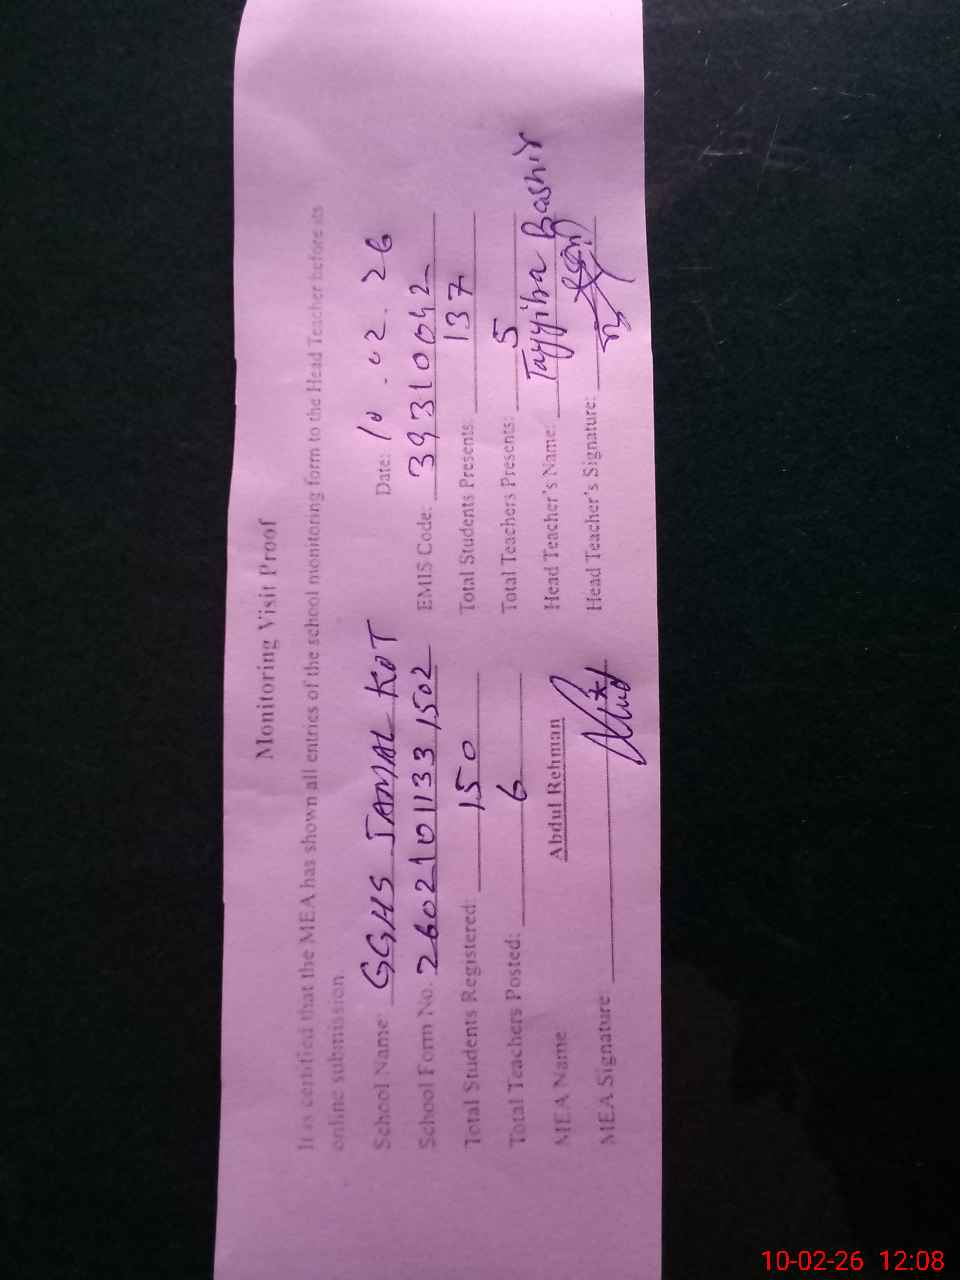 Monitoring Visit Proof
It is certified that the MEA has shown all entries of the school monitoring form to the Head Teacher before its
online submission
School Name: GGHS JAMAL KOT Date: 10.02.26
School Form No. 2602101133 1502 EMIS Code: 39310042
Total Students Registered: 150 Total Students Presents: 137
Total Teachers Posted: 6 Total Teachers Presents: 5
MEA Name Abdul Rehman Head Teacher's Name: Tayyiba Bashir
MEA Signature: Head Teacher's Signature:
10-02-26 12:08